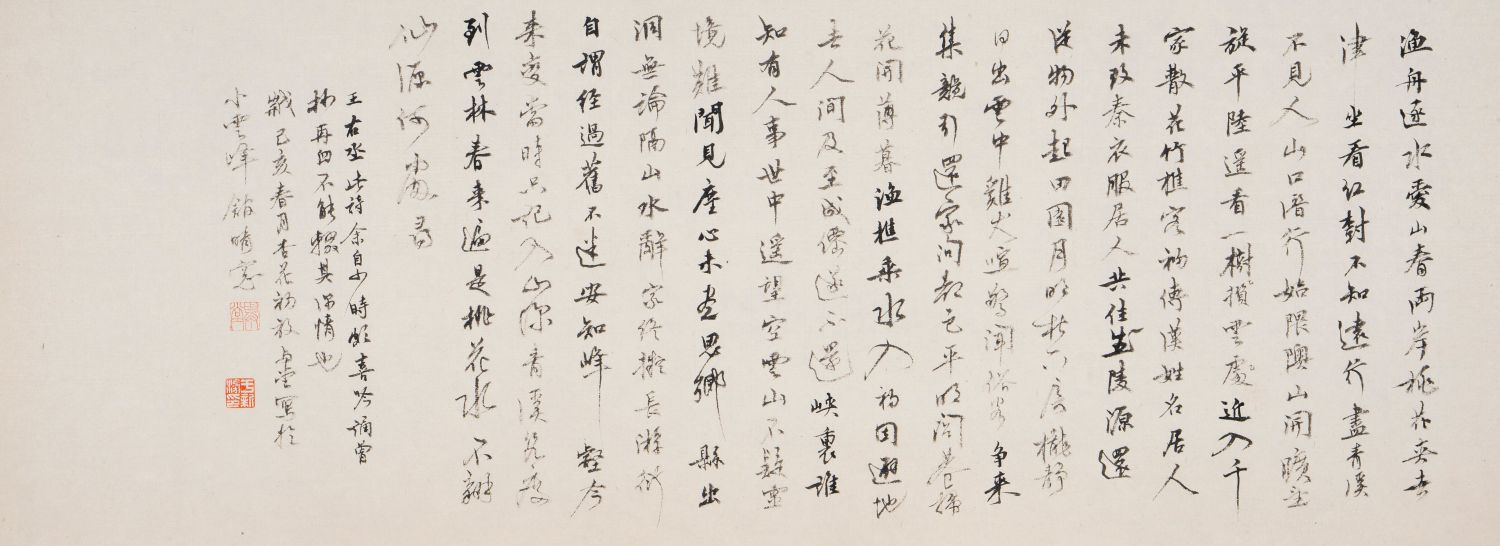 渔舟逐水愛山春兩岸桃花夾去
津坐看红樹不知遠行盡青溪
不見人山口潛行始隈隩山開曠望
旋平陸遥看一樹攅雲處近入千
家散花竹樵客初傳漢姓名居人
未改秦衣服居人共住武陵源還
從物外起田園月明松下房櫳静
日出雲中雞犬喧驚聞俗客争来
集競引還家问都邑平明閭巷掃
花開薄暮漁樵乘水入初因避地
去人间及至成僊遂不還峽裏誰
知有人事世中遥望空雲山不疑靈
境難聞見塵心未盡思鄉縣出
洞無論隔山水辭家終擬長游衍
自謂經過舊不迷安知峰壑今
来變當時只记入山深青溪幾度
到雲林春来遍是桃花水不辨
仙源何處尋
王右丞此詩余自少時頗喜吟誦曾
抄再四不能輟其深情也
己亥春月杏花初放寫於
小雲峰館晴窓